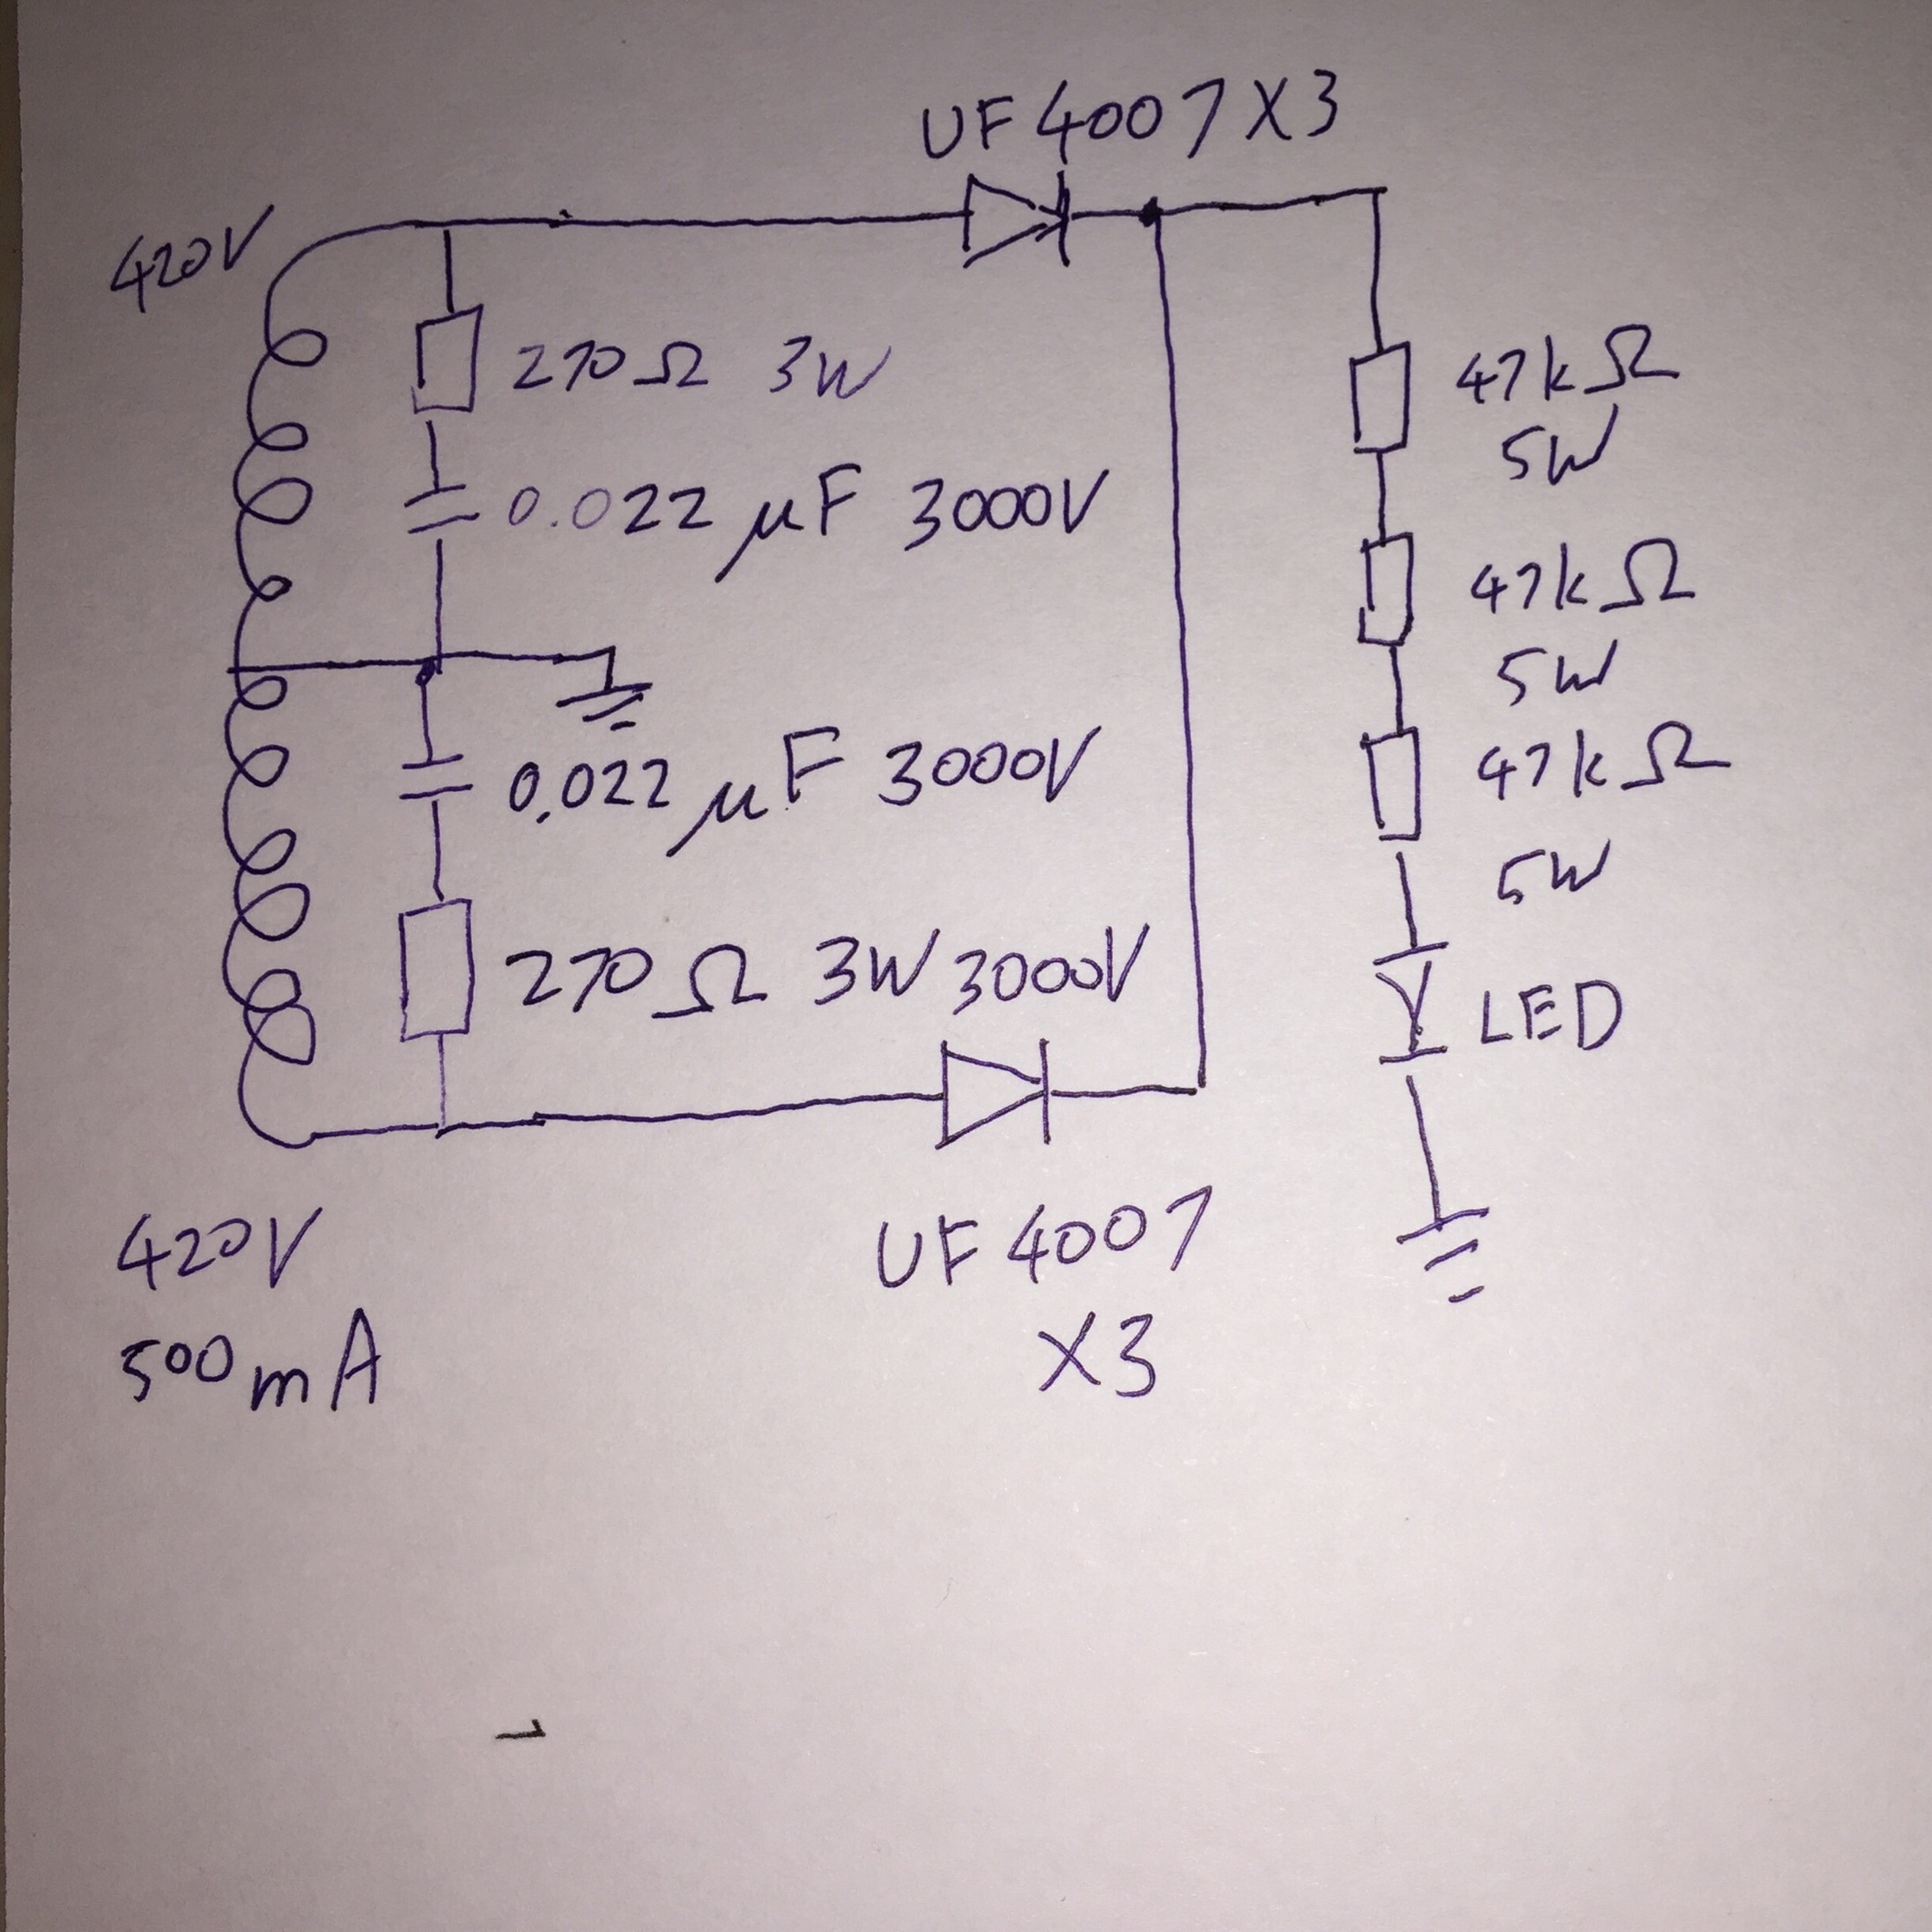 UF4007 X3
420V
270Ω 3W
47kΩ
5W
0.022 μF 3000V
47kΩ
5W
0.022 μF 3000V
47kΩ
5W
270Ω 3W 3000V
LED
420V
500mA
UF4007
X3